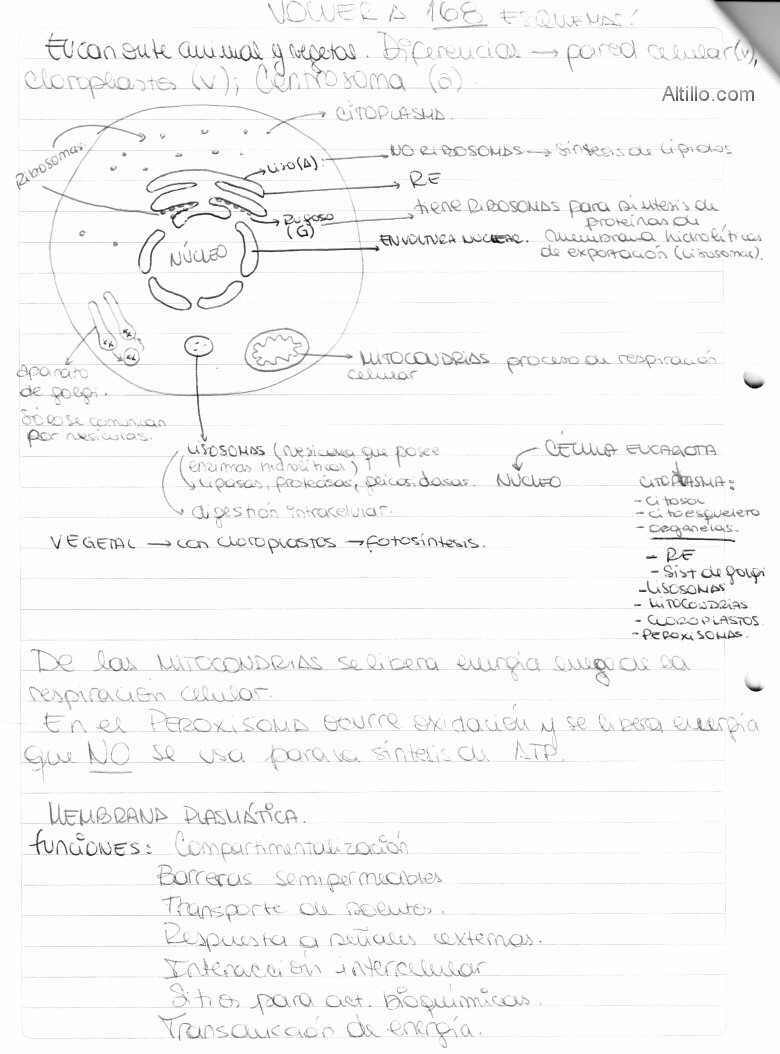 VOLVER A 168 ESQUEMAS!
Eucarionte animal y vegetal. Diferencias → pared celular (v),
cloroplastos (v); Centrosoma (a).
Altillo.com
CITOPLASMA.
Ribosomas
LISO (A) NO RIBOSOMAS → síntesis de lípidos
RE
Rugoso (G) tiene RIBOSOMAS para síntesis de
proteínas de
ENVOLTURA NUCLEAR. membrana hidrolíticas
de exportación (lisosomas).
NÚCLEO
Aparato
de golgi.
Sólo se comunican
por vesículas.
MITOCONDRIAS proceso de respiración
celular
LISOSOMAS (vesícula que posee
enzimas hidrolíticas)
lipasas, proteasas, glicosidasas.
digestión intracelular.
CÉLULA EUCARIOTA
NÚCLEO
CITOPLASMA:
- Citosol
- citoesqueleto
- organelas.
- RE
- Sist de golgi
- LISOSOMAS
- MITOCONDRIAS
- CLOROPLASTOS.
- PEROXISOMAS.
VEGETAL → con cloroplastos → fotosíntesis.
De las MITOCONDRIAS se libera energía luego de la
respiración celular.
En el PEROXISOMA ocurre oxidación y se libera energía
que NO se usa para la síntesis de ATP.
MEMBRANA PLASMÁTICA.
funciones: Compartimentalización
Barreras semipermeables
Transporte de solutos.
Respuesta a señales externas.
Interacción intercelular
Sitios para act. bioquímicas.
Transducción de energía.